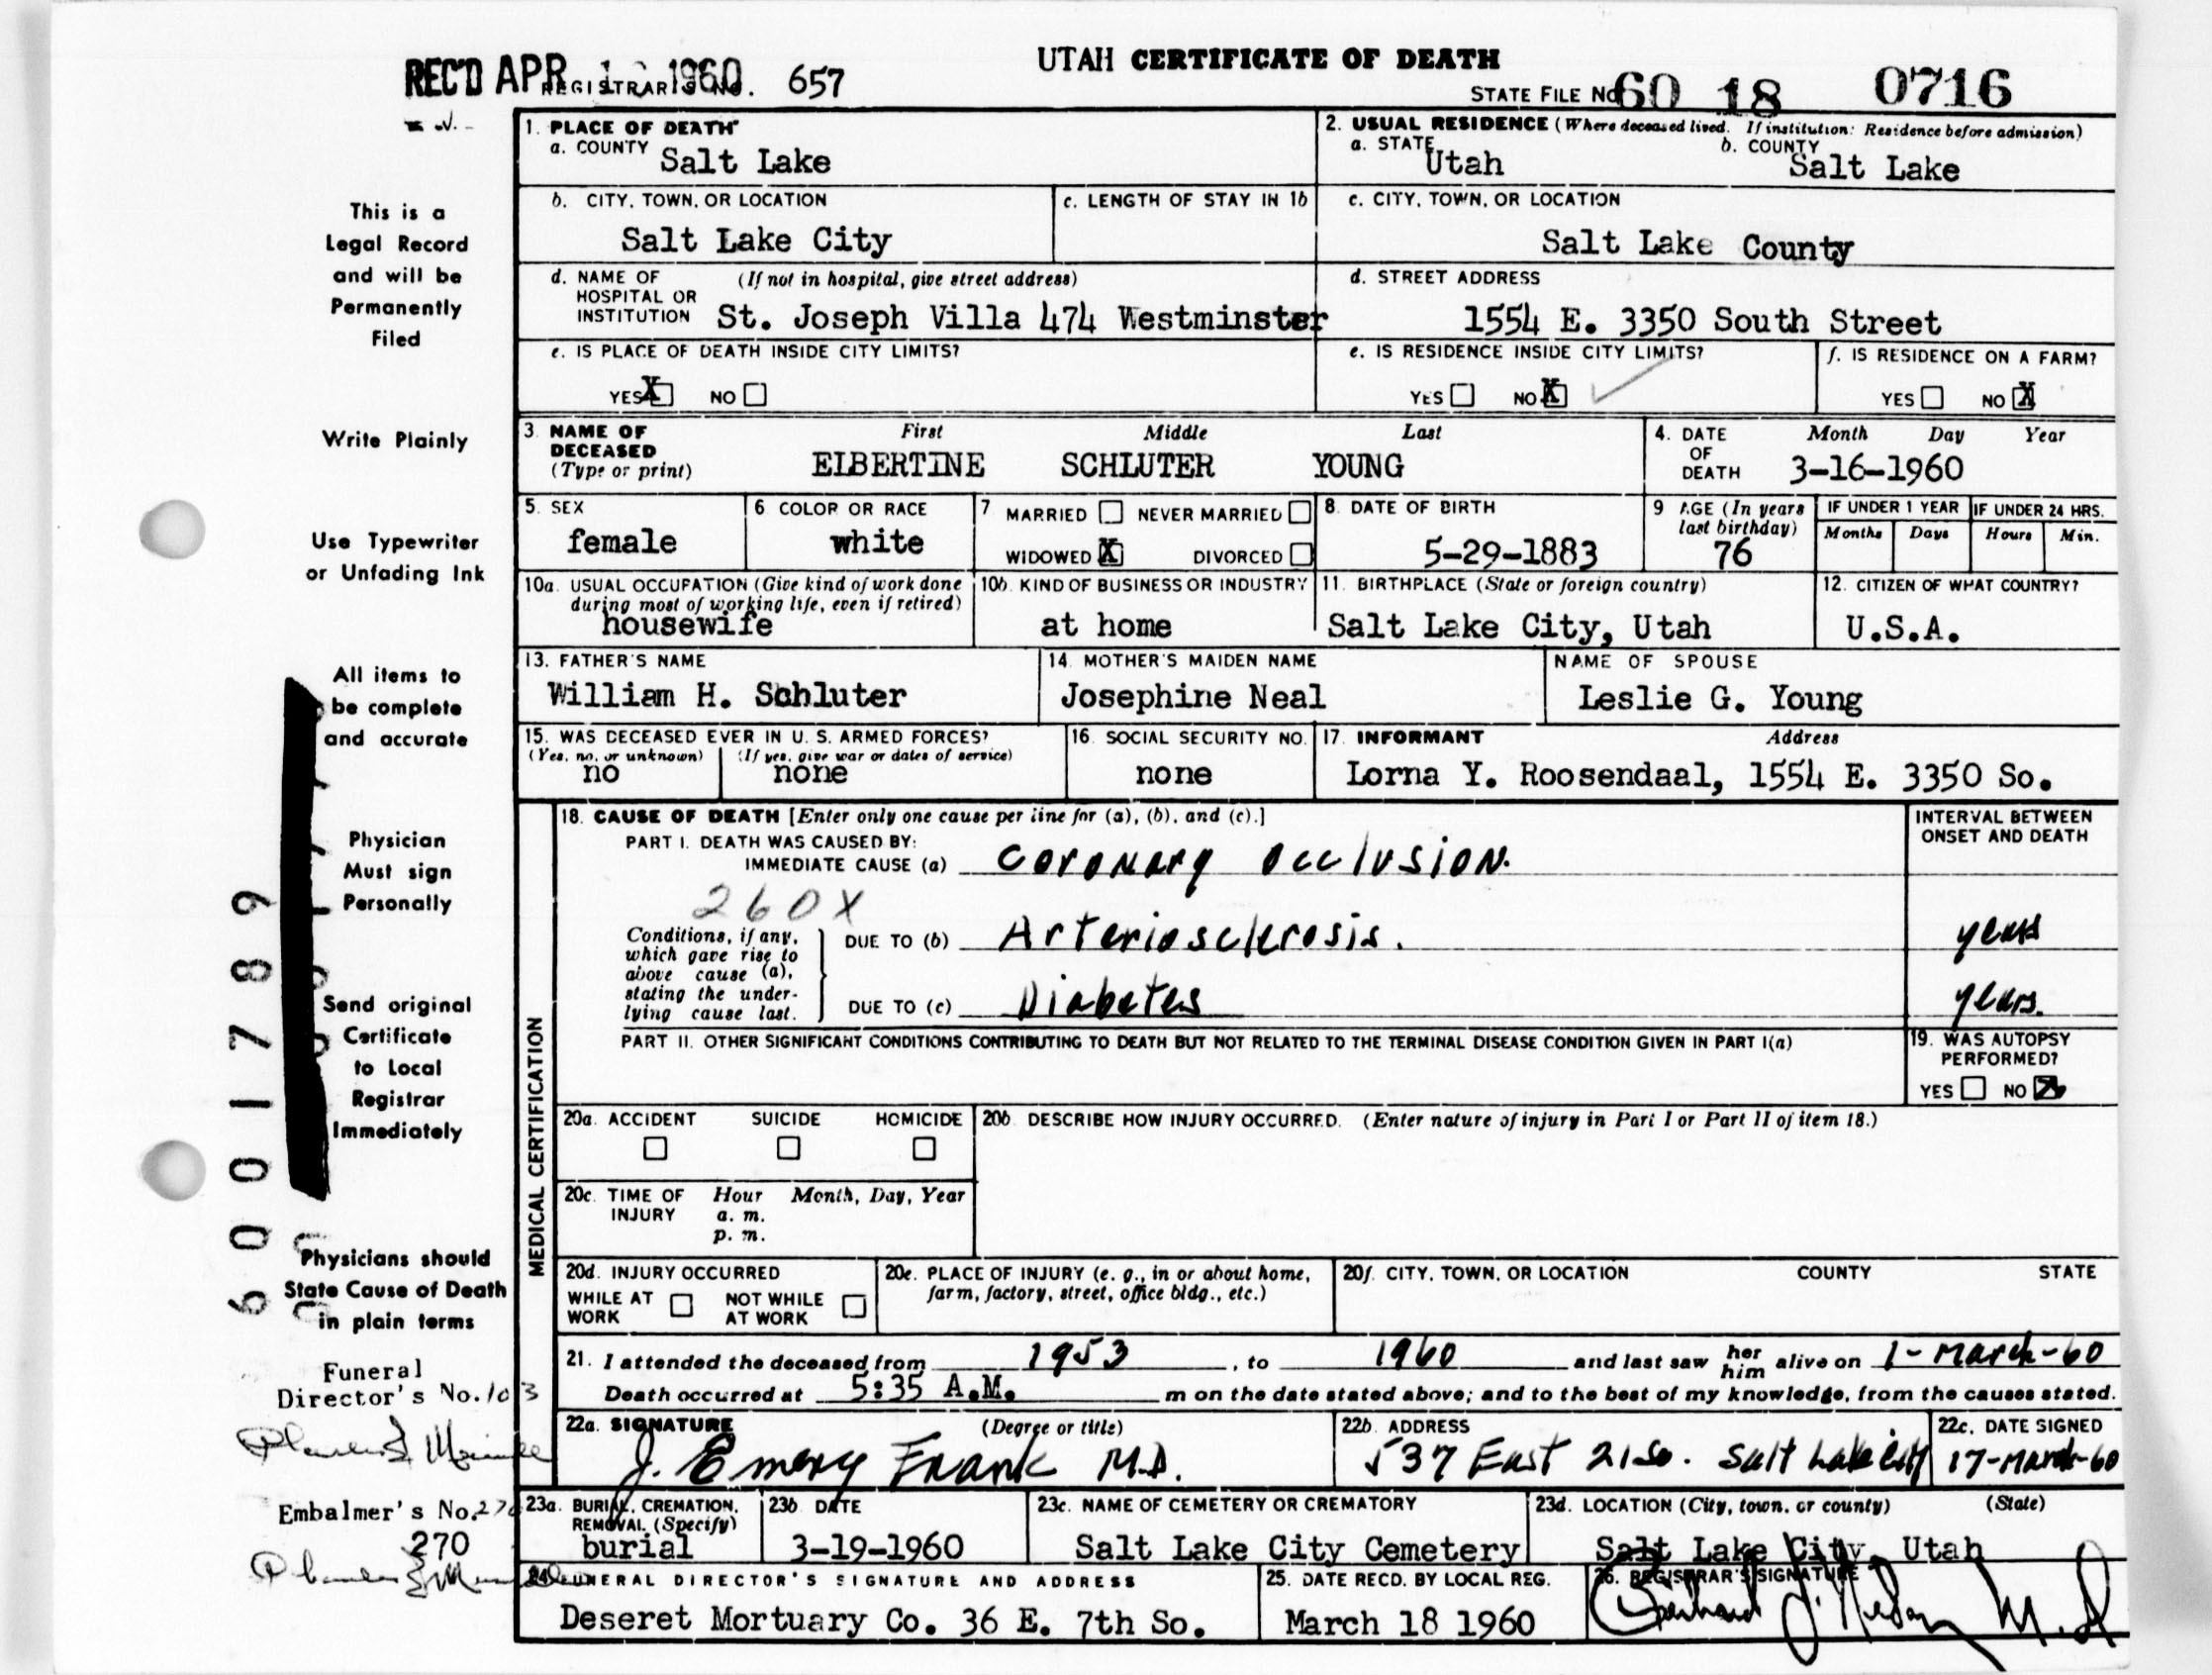 UTAH CERTIFICATE OF DEATH
REC'D APR 1960 REGISTRAR'S NO. 657
STATE FILE NO. 60 18 0716
This is a
Legal Record
and will be
Permanently
Filed
Write Plainly
Use Typewriter
or Unfading Ink
All items to
be complete
and accurate
Physician
Must sign
Personally
Send original
Certificate
to Local
Registrar
Immediately
Physicians should
State Cause of Death
in plain terms
Funeral
Director's No. 103
Embalmer's No. 270
270
6001789
1. PLACE OF DEATH
a. COUNTY Salt Lake
2. USUAL RESIDENCE (Where deceased lived. If institution: Residence before admission)
a. STATE Utah b. COUNTY Salt Lake
b. CITY, TOWN, OR LOCATION Salt Lake City
c. LENGTH OF STAY IN 1b
c. CITY, TOWN, OR LOCATION Salt Lake County
d. NAME OF HOSPITAL OR INSTITUTION (If not in hospital, give street address) St. Joseph Villa 474 Westminster
d. STREET ADDRESS 1554 E. 3350 South Street
e. IS PLACE OF DEATH INSIDE CITY LIMITS?
YES X NO
e. IS RESIDENCE INSIDE CITY LIMITS?
YES NO X
f. IS RESIDENCE ON A FARM?
YES NO X
3. NAME OF DECEASED (Type or print) First Middle Last
ELBERTINE SCHLUTER YOUNG
4. DATE OF DEATH Month Day Year
3-16-1960
5. SEX female
6 COLOR OR RACE white
7 MARRIED NEVER MARRIED
WIDOWED X DIVORCED
8. DATE OF BIRTH 5-29-1883
9 AGE (In years last birthday) 76
IF UNDER 1 YEAR Months Days
IF UNDER 24 HRS. Hours Min.
10a. USUAL OCCUPATION (Give kind of work done during most of working life, even if retired) housewife
10b. KIND OF BUSINESS OR INDUSTRY at home
11. BIRTHPLACE (State or foreign country) Salt Lake City, Utah
12. CITIZEN OF WHAT COUNTRY? U.S.A.
13. FATHER'S NAME William H. Schluter
14. MOTHER'S MAIDEN NAME Josephine Neal
NAME OF SPOUSE Leslie G. Young
15. WAS DECEASED EVER IN U. S. ARMED FORCES?
(Yes, no, or unknown) no (If yes, give war or dates of service) none
16. SOCIAL SECURITY NO. none
17. INFORMANT Address
Lorna Y. Roosendaal, 1554 E. 3350 So.
MEDICAL CERTIFICATION
18. CAUSE OF DEATH [Enter only one cause per line for (a), (b), and (c).]
INTERVAL BETWEEN ONSET AND DEATH
PART I. DEATH WAS CAUSED BY:
IMMEDIATE CAUSE (a) Coronary Occlusion.
260X
Conditions, if any, which gave rise to above cause (a), stating the underlying cause last.
DUE TO (b) Arteriosclerosis. years
DUE TO (c) Diabetes years.
PART II. OTHER SIGNIFICANT CONDITIONS CONTRIBUTING TO DEATH BUT NOT RELATED TO THE TERMINAL DISEASE CONDITION GIVEN IN PART I(a)
19. WAS AUTOPSY PERFORMED?
YES NO X
20a. ACCIDENT SUICIDE HOMICIDE
20b DESCRIBE HOW INJURY OCCURRED. (Enter nature of injury in Part I or Part II of item 18.)
20c. TIME OF INJURY Hour Month, Day, Year
a. m.
p. m.
20d. INJURY OCCURRED
WHILE AT WORK NOT WHILE AT WORK
20e. PLACE OF INJURY (e. g., in or about home, farm, factory, street, office bldg., etc.)
20f. CITY, TOWN, OR LOCATION COUNTY STATE
21. I attended the deceased from 1953, to 1960 and last saw her him alive on 1-March-60
Death occurred at 5:35 A.M. m on the date stated above; and to the best of my knowledge, from the causes stated.
22a. SIGNATURE (Degree or title)
J. Emery Frank M.D.
22b. ADDRESS 537 East 21 So. Salt Lake City
22c. DATE SIGNED 17-March-60
23a. BURIAL, CREMATION, REMOVAL (Specify) burial
23b DATE 3-19-1960
23c. NAME OF CEMETERY OR CREMATORY Salt Lake City Cemetery
23d. LOCATION (City, town, or county) (State)
Salt Lake City, Utah
24. FUNERAL DIRECTOR'S SIGNATURE AND ADDRESS
Deseret Mortuary Co. 36 E. 7th So.
25. DATE RECD. BY LOCAL REG.
March 18 1960
26. REGISTRAR'S SIGNATURE
M.D.